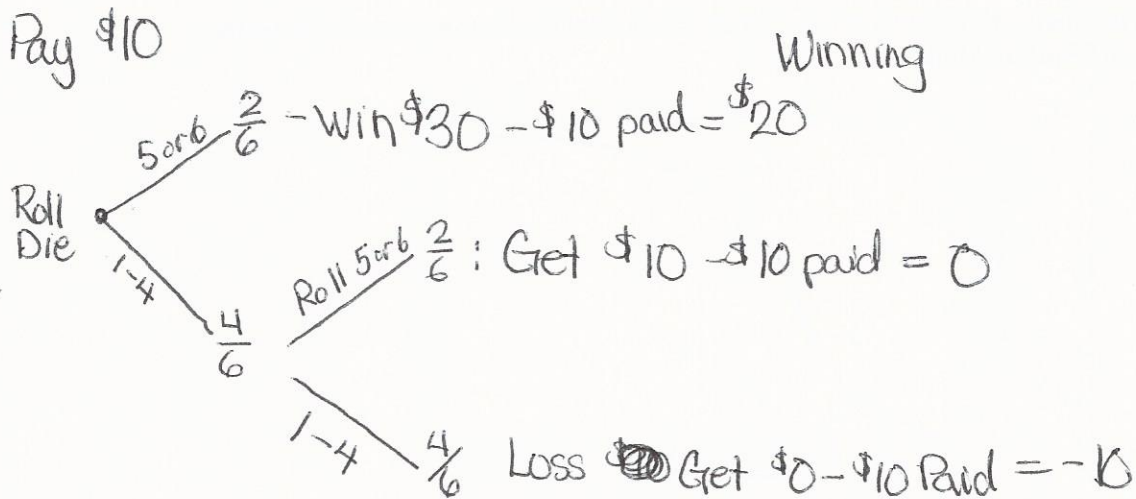 Pay $10
Winning
5 or 6 2/6 - Win $30 - $10 paid = $20
Roll
Die
1-4
4/6
Roll 5 or 6 2/6 : Get $10 - $10 paid = 0
1-4 4/6 Loss Get $0 - $10 Paid = -10